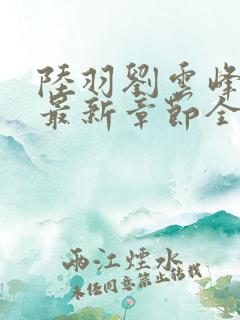 陸羽劉雲峰
最新章節全
兩江煙水
未经同意禁止转载